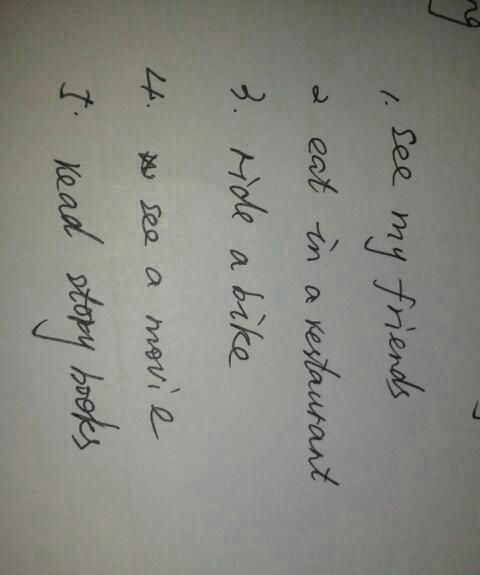 1. see my friends
2 eat in a restaurant
3. ride a bike
4. see a movie
5. read story books